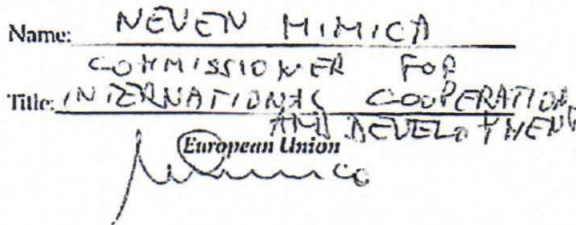 Name: NEVEN MIMICA
COMMISSIONER FOR
Title: INTERNATIONAL COOPERATION
AND DEVELOPMENT
European Union